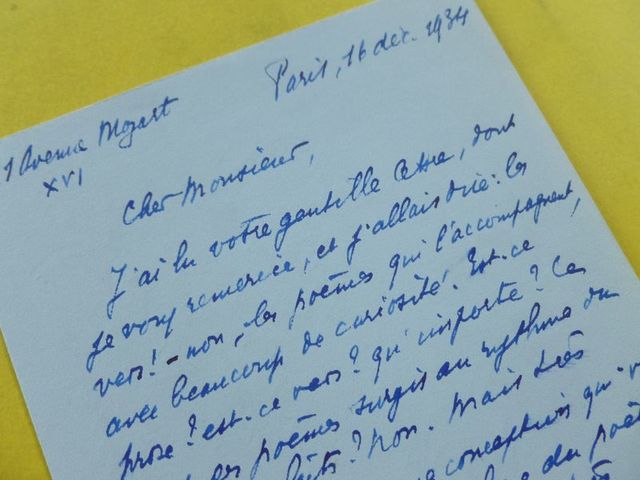 Paris, 16 déc. 1934
1 Avenue Mozart
XVI
Cher Monsieur,
J'ai lu votre gentille lettre, dont
je vous remercie, et j'allais dire: les
vers! - non, les poèmes qui l'accompagnent,
avec beaucoup de curiosité. Est-ce
prose? est-ce vers? qu'importe? Ce
des poèmes surgis au rythme du
? Non. Mais très
conception qui
du poè